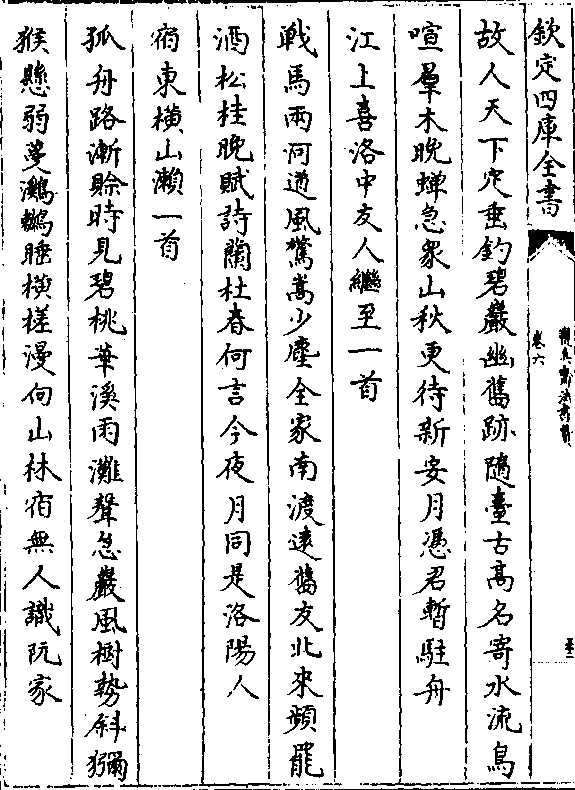 欽定四庫全書
寶真齋法書贊
卷六
故人天下定垂釣碧巖幽舊跡隨臺古高名寄水流鳥
喧羣木晚蟬急衆山秋更待新安月憑君暫駐舟
江上喜洛中友人繼至一首
戰馬兩河道風驚嵩少塵全家南渡遠舊友北來頻罷
酒松桂晚賦詩蘭杜春何言今夜月同是洛陽人
宿東橫山瀨一首
孤舟路漸賒時見碧桃華溪雨灘聲怱巖風樹勢斜獼
猴懸弱蔓鸂鶒睡橫槎漫向山林宿無人識阮家